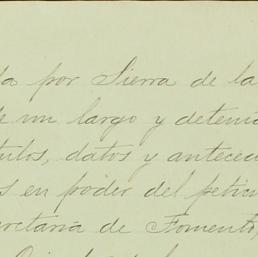 da por Sierra de la
de un largo y deteni
tulos, datos y antece
s en poder del petic
cretaría de Fomento,